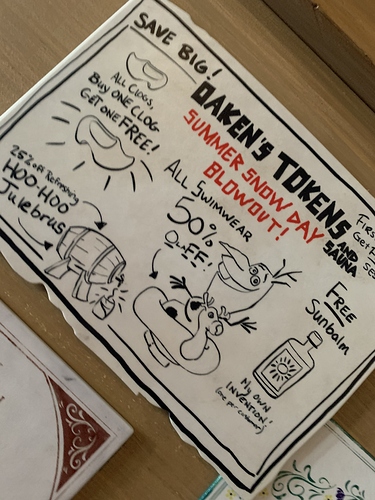 SAVE BIG!
OAKEN'S TOKENS
AND
SAUNA
SUMMER SNOW DAY
BLOWOUT!
ALL CLOGS,
BUY ONE CLOG
GET ONE FREE!
ALL SWIMWEAR
50%
OuFF!!
25% off Refreshing
HOO-HOO
Julebrus
FREE
Sunbalm
My OWN
INVENTION!
(one per customer)